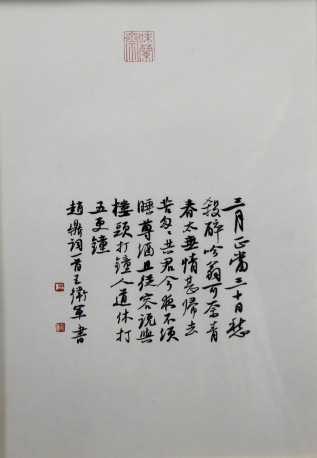 三月正當三十日愁
殺醉吟翁可奈青
春太無情甚歸去
苦匆々共君今夜不須
睡尊酒且從容說與
樓頭打鐘人道休打
五更鐘
趙鼎詞一首王衛軍書